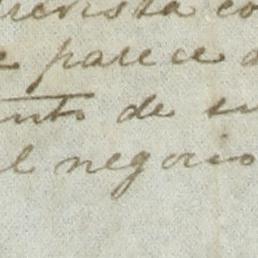 trevista co
e parece a
ento de su
el negocio